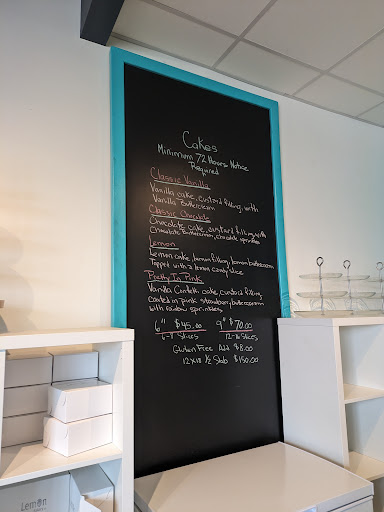 Cakes
Minimum 72 Hours Notice
Required
Classic Vanilla
Vanilla cake, custard filling, with
Vanilla Buttercream
Classic Chocolate
Chocolate cake, custard filling with
Chocolate Buttercream, chocolate sprinkles
Lemon
Lemon cake, lemon filling, lemon buttercream
Topped with a lemon candy slice
Pretty In Pink
Vanilla Confetti cake, custard filling
coated in pink strawberry buttercream
with rainbow sprinkles
6" $45.00 9" $70.00
6-7 Slices 12-16 Slices
Gluten Free Add $8.00
12x18 1/2 Slab $150.00
Lemon